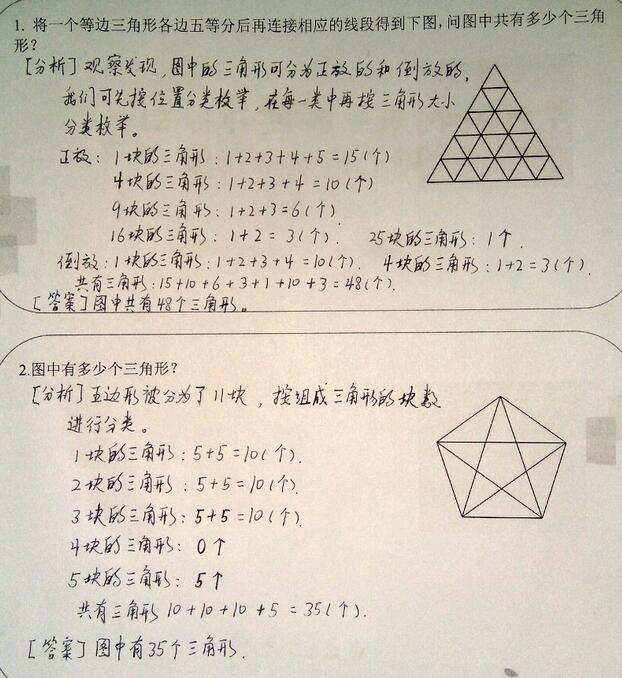 1. 将一个等边三角形各边五等分后再连接相应的线段得到下图,问图中共有多少个三角
形?
[分析] 观察发现,图中的三角形可分为正放的和倒放的,
我们可先按位置分类枚举,在每一类中再按三角形大小
分类枚举。
正放: 1块的三角形: 1+2+3+4+5=15(个)
4块的三角形: 1+2+3+4=10(个)
9块的三角形: 1+2+3=6(个)
16块的三角形: 1+2=3(个). 25块的三角形: 1个.
倒放: 1块的三角形: 1+2+3+4=10(个). 4块的三角形: 1+2=3(个).
共有三角形: 15+10+6+3+1+10+3=48(个).
[答案] 图中共有48个三角形。
2.图中有多少个三角形?
[分析] 五边形被分为了11块,按组成三角形的块数
进行分类。
1块的三角形: 5+5=10(个).
2块的三角形: 5+5=10(个).
3块的三角形: 5+5=10(个).
4块的三角形: 0个
5块的三角形: 5个
共有三角形 10+10+10+5=35(个).
[答案] 图中有35个三角形.